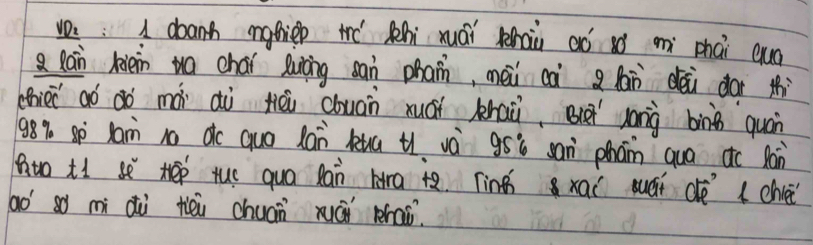 VD2 : 1 doanh nghiệp trc khi xuất khẩu áo sơ mi phải qua
2 lần kiểm tra chất lượng sản phẩm, nếu cả 2 lần đều đạt thì
chiếc áo đó mới đủ tiêu chuẩn xuất khẩu. Biết rằng bình quân
98% sp làm ra đc qua lần ktra t1 và 95% sản phẩm qua đc lần
ktra t1 sẽ tiếp tục qua lần ktra t2. Tính xác suất để 1 chiếc
áo sơ mi đủ tiêu chuẩn xuất khẩu.